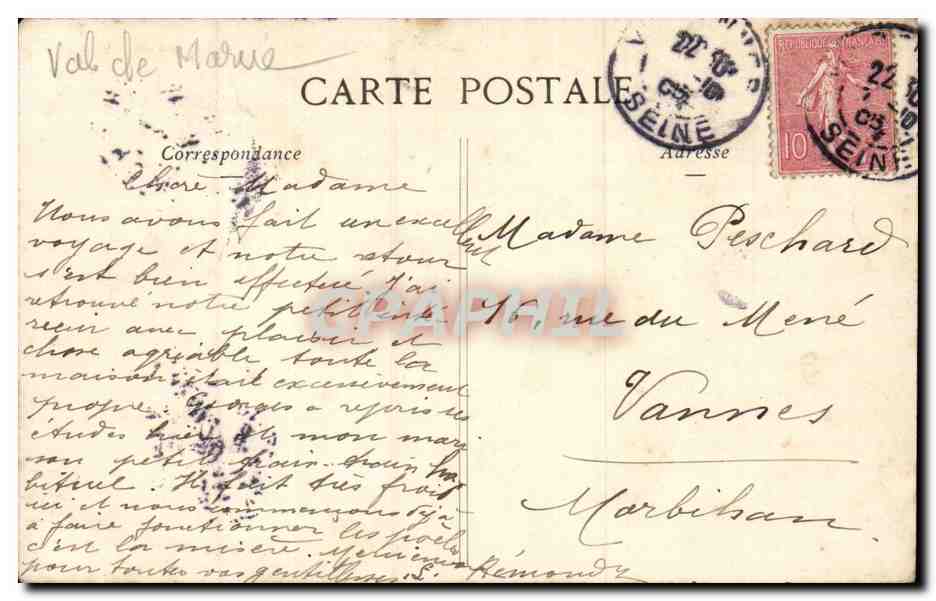 Val de Marne
CARTE POSTALE
REPUBLIQUE FRANCAISE
10
22
SEINE
22
SEINE
Correspondance
Adresse
Chère Madame
Nous avons fait un excellent
voyage et notre retour
s'est bien effectué J'ai
retrouvé notre petit
avec plaisir et
chose agréable toute la
maison était excessivement
propre. Georges a repris ses
études hier et mon mari
son petit train train ha
bituel. Il fait très froid
ici et nous commençons déjà
à faire fonctionner les poêles
c'est la misère. Mes
pour toutes vos gentillesses. S. Rémondy
Madame Peschard
16, rue du Mené
Vannes
Morbihan
CPAPHIL